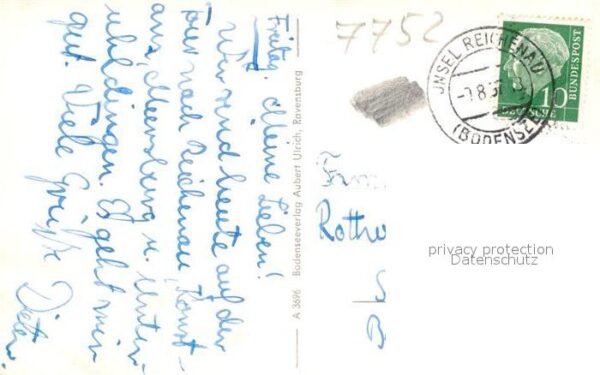 Freitag. Meine Lieben!
Wir sind heute auf der
Tour nach Reichenau, Konst-
anz, Meersburg u. Unter-
uhldingen. Es geht mir
gut. Viele Grüße
Dieter.
A 3696 Bodenseeverlag Aubert Ulrich, Ravensburg
7752
INSEL REICHENAU
(BODENSEE)
DEUTSCHE
BUNDESPOST
10
privacy protection
Datenschutz